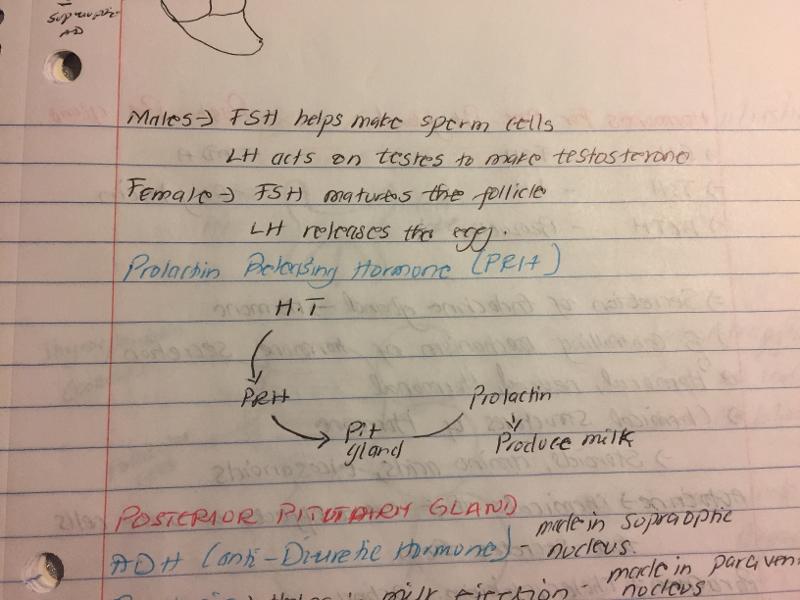 supraoptic
AD
Males → FSH helps make sperm cells
LH acts on testes to make testosterone
Female → FSH matures the follicle
LH releases the egg.
Prolactin Relerising Hormone (PRH)
H.T
PRH
Prolactin
Pit
gland
Produce milk
POSTERIOR PITUTARY GLAND
ADH (anti-Diuretic Hormone) - made in supraoptic
nucleus.
made in paraven
milk ejection - nucleus